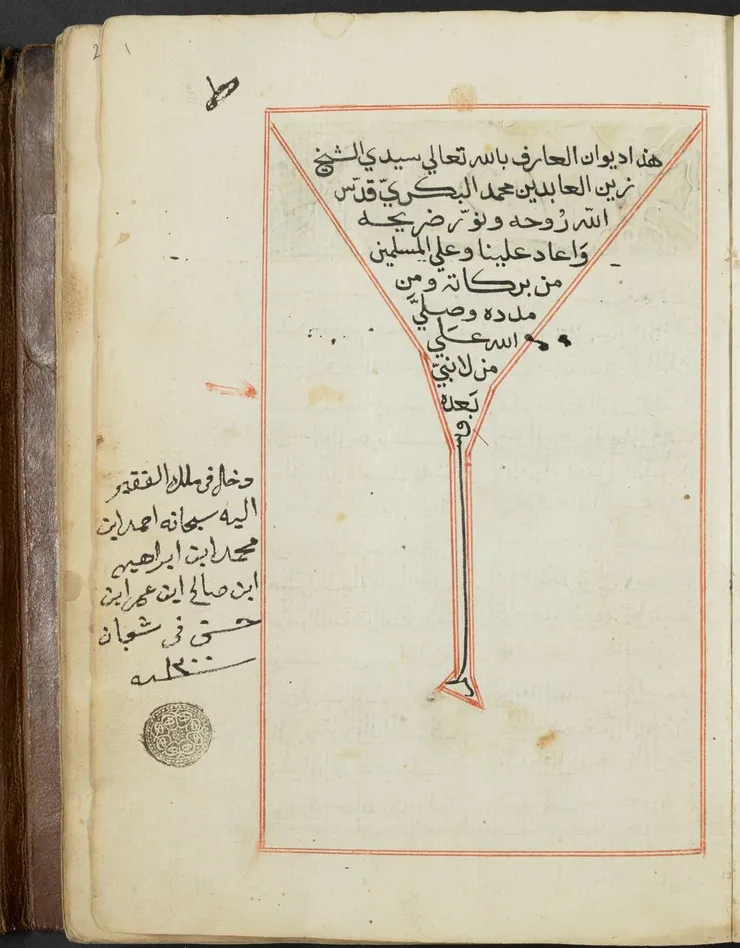 هذا ديوان العارف بالله تعالي سيدي الشيخ
زين العابدين محمد البكريّ قدّس
الله رُوحه ونوّر ضريحه
وَاعاد علينا وعلي المسلمين
من بركاته ومن
مدده وصليَّ
الله عَلَي
من لا نبيّ
بَعده
دخل في ملك الفقير
اليه سبحانه احمد ابن
محمد ابن ابراهيم
ابن صالح ابن عمر ابن
في شعبان
سنة ١٣٠٠
2 1